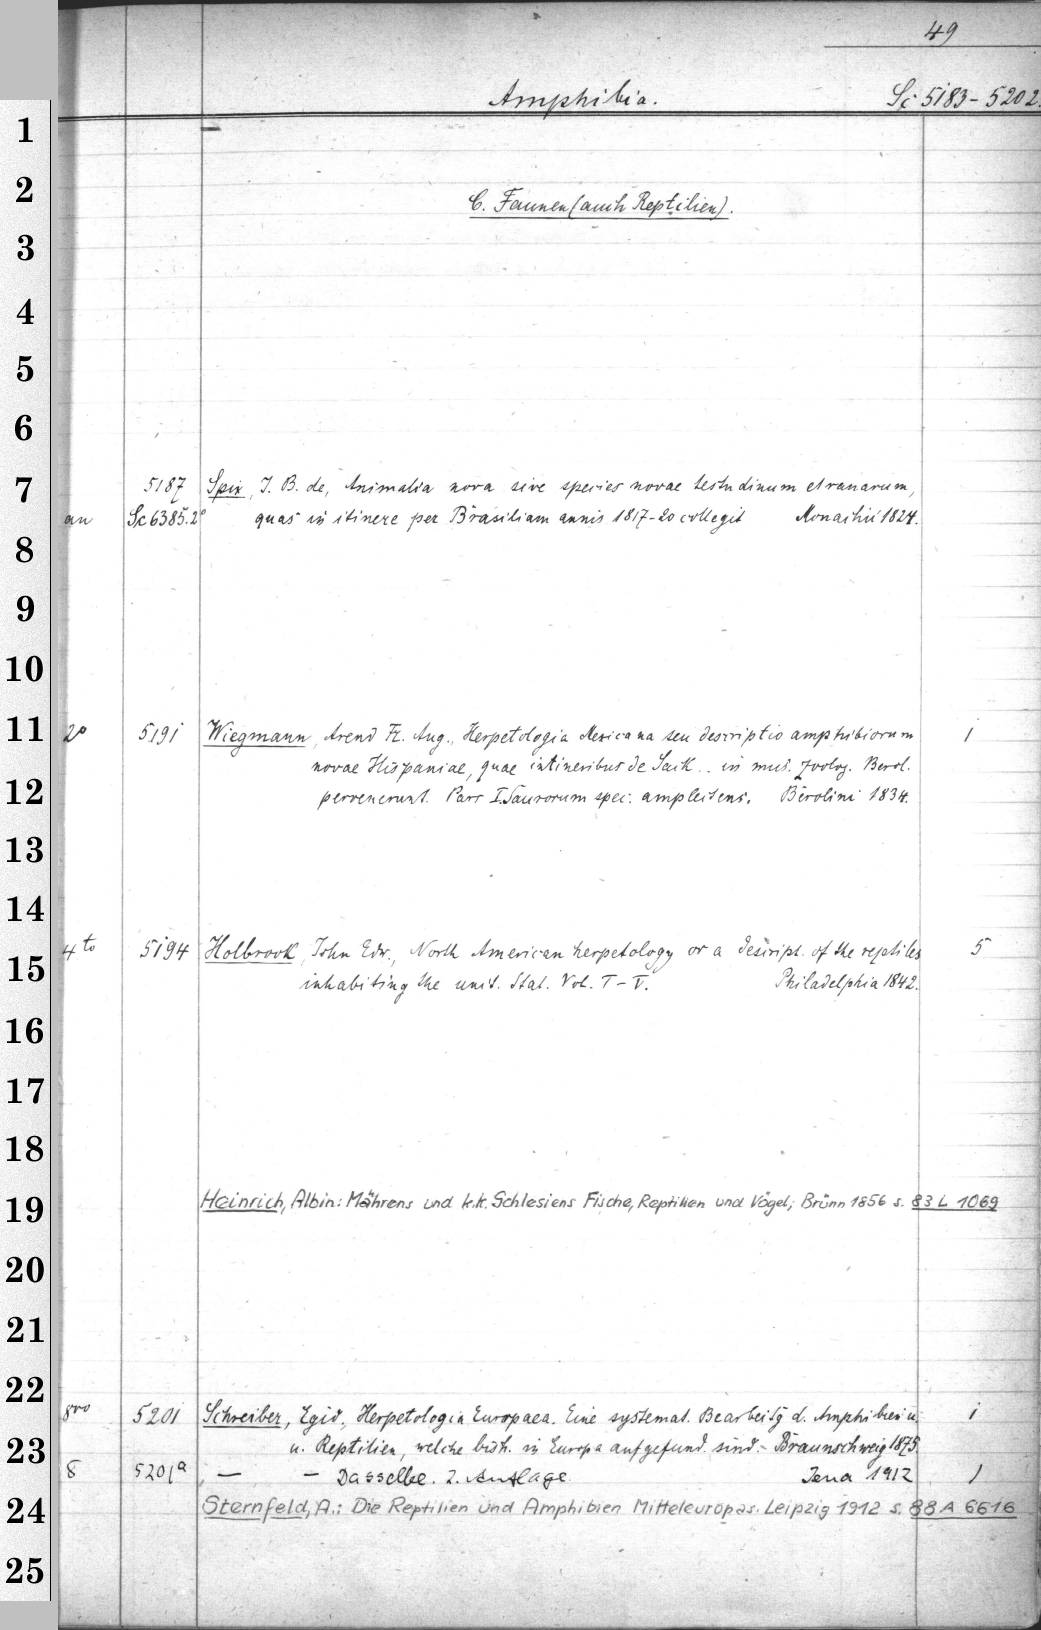 49
Amphibia. Sc 5183-5202.
1
2
C. Faunen (auch Reptilien).
3
4
5
6
7 5187 Spix, J. B. de, Animalia nova sive species novae testudinum et ranarum,
an Sc 6385.2° quas in itinere per Brasiliam annis 1817-20 collegit Monachii 1824.
8
9
10
11 2° 5191 Wiegmann, Arend Fr. Aug., Herpetologia Mexicana seu descriptio amphibiorum 1
novae Hispaniae, quae itineribus de Sack .. in mus. zoolog. Berol.
12 pervenerunt. Pars I. Saurorum spec. amplectens. Berolini 1834.
13
14
4to 5194 Holbrook, John Edw., North American herpetology or a descript. of the reptiles 5
15 inhabiting the unit. Stat. Vol. I-V. Philadelphia 1842.
16
17
18
19 Heinrich, Albin: Mährens und k.k. Schlesiens Fische, Reptilien und Vögel; Brünn 1856 s. 83 L 1069
20
21
22
8vo 5201 Schreiber, Egid, Herpetologia Europaea. Eine systemat. Bearbeitg d. Amphibien u. 1
23 u. Reptilien, welche bish. in Europa aufgefund. sind.- Braunschweig 1875.
8 5201a — — Dasselbe. 2. Auflage. Jena 1912 1
24 Sternfeld, A.: Die Reptilien und Amphibien Mitteleuropas. Leipzig 1912 s. 88 A 6616
25